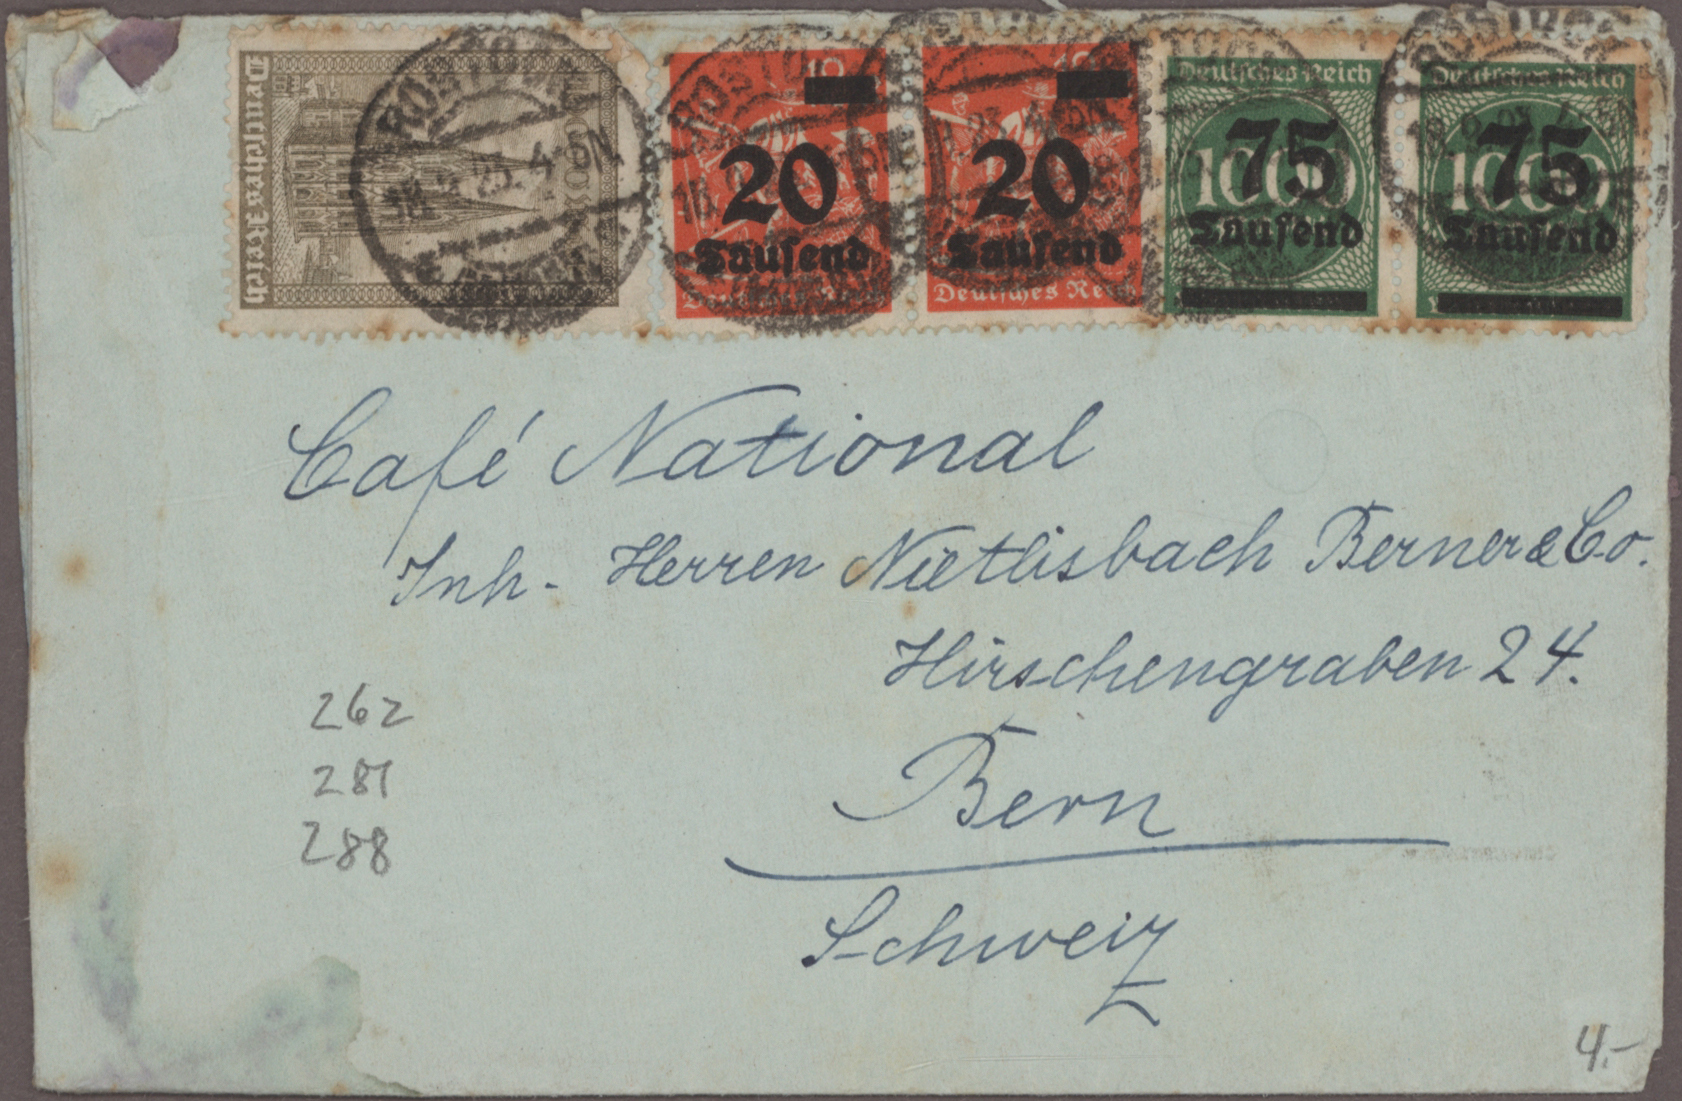 Deutsches Reich
10000
ROSTOCK
18.9.23. 4-5N
12
20
Tausend
Deutsches Reich
20
Tausend
Deutsches Reich
Deutsches Reich
1000
75
Tausend
Deutsches Reich
1000
75
Tausend
Café National
Inh. Herren Nietlisbach Berner & Co.
Hirschengraben 24.
Bern
Schweiz
262
281
288
4.-